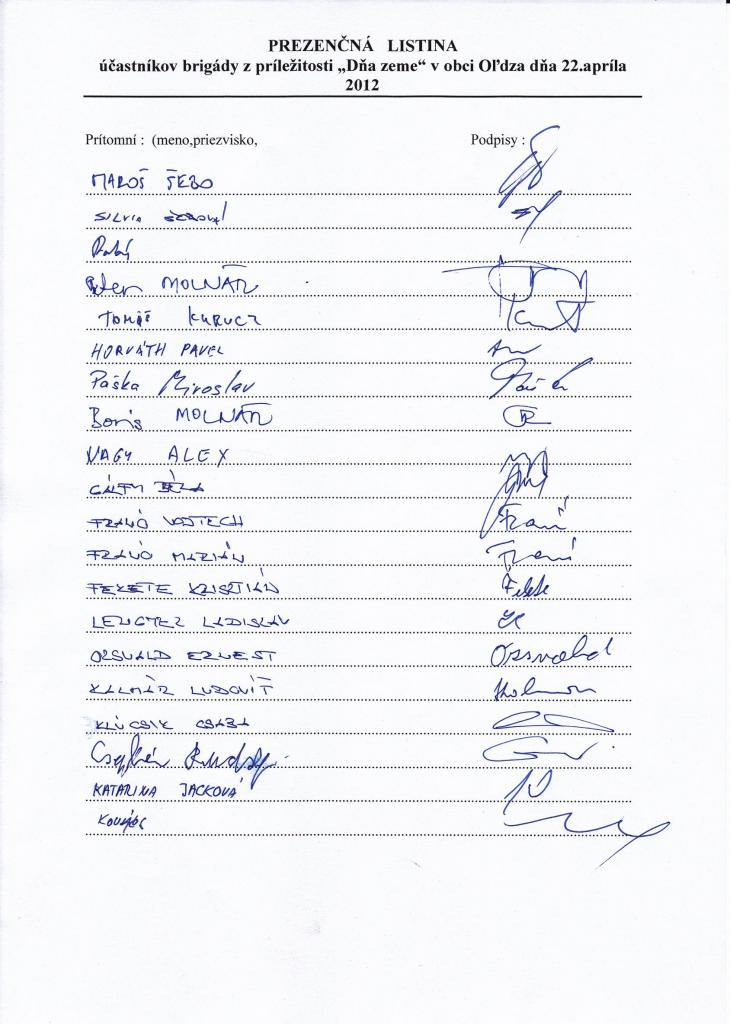 PREZENČNÁ LISTINA
účastníkov brigády z príležitosti „Dňa zeme“ v obci Oľdza dňa 22.apríla
2012
Prítomní : (meno,priezvisko, Podpisy :
MAROŠ ŠEBO
SILVIA
Peter MOLNÁR
TOMÁŠ KURUCZ
HORVÁTH PAVEL
Paška Miroslav
Boris MOLNÁR
NAGY ALEX
GÁLFY BÉLA
FRANÓ VOJTECH Franó
FRANÓ MARIÁN Franó
FEKETE KRISZTIÁN Fekete
LENGYEL LADISLAV
ORSVALD ERNEST
KALMÁR ĽUDOVÍT
KLÚCSIK CSABA
KATARINA JACKOVÁ